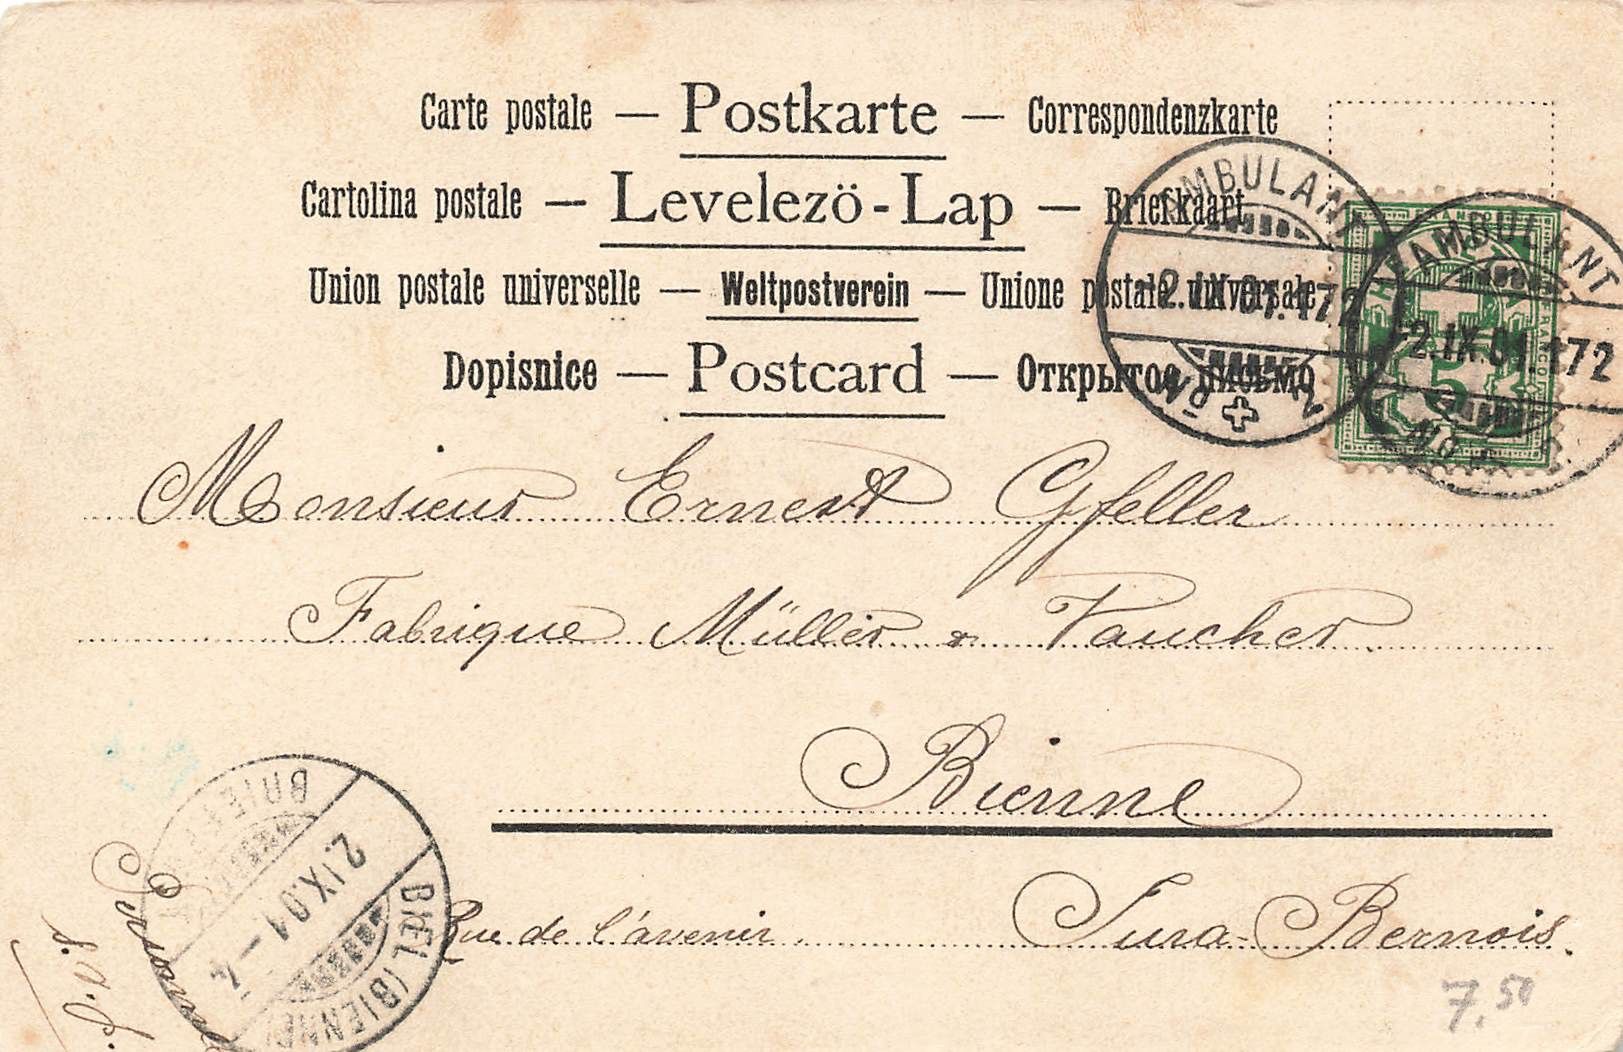 Carte postale — Postkarte — Correspondenzkarte
Cartolina postale — Levelezö-Lap — Briefkaart
Union postale universelle — Weltpostverein — Unione postale universale
Dopisnice — Postcard — Открытое письмо
AMBULANT
2.IX.01.172
Nº
AMBULANT
2.IX.01.172
Nº
FRANCO
5
Monsieur Ernest Gfeller
Fabrique Müller & Vaucher
Bienne
Rue de l'avenir Jura-Bernois.
BIEL (BIENNE)
2.IX.01 – 4
7,50